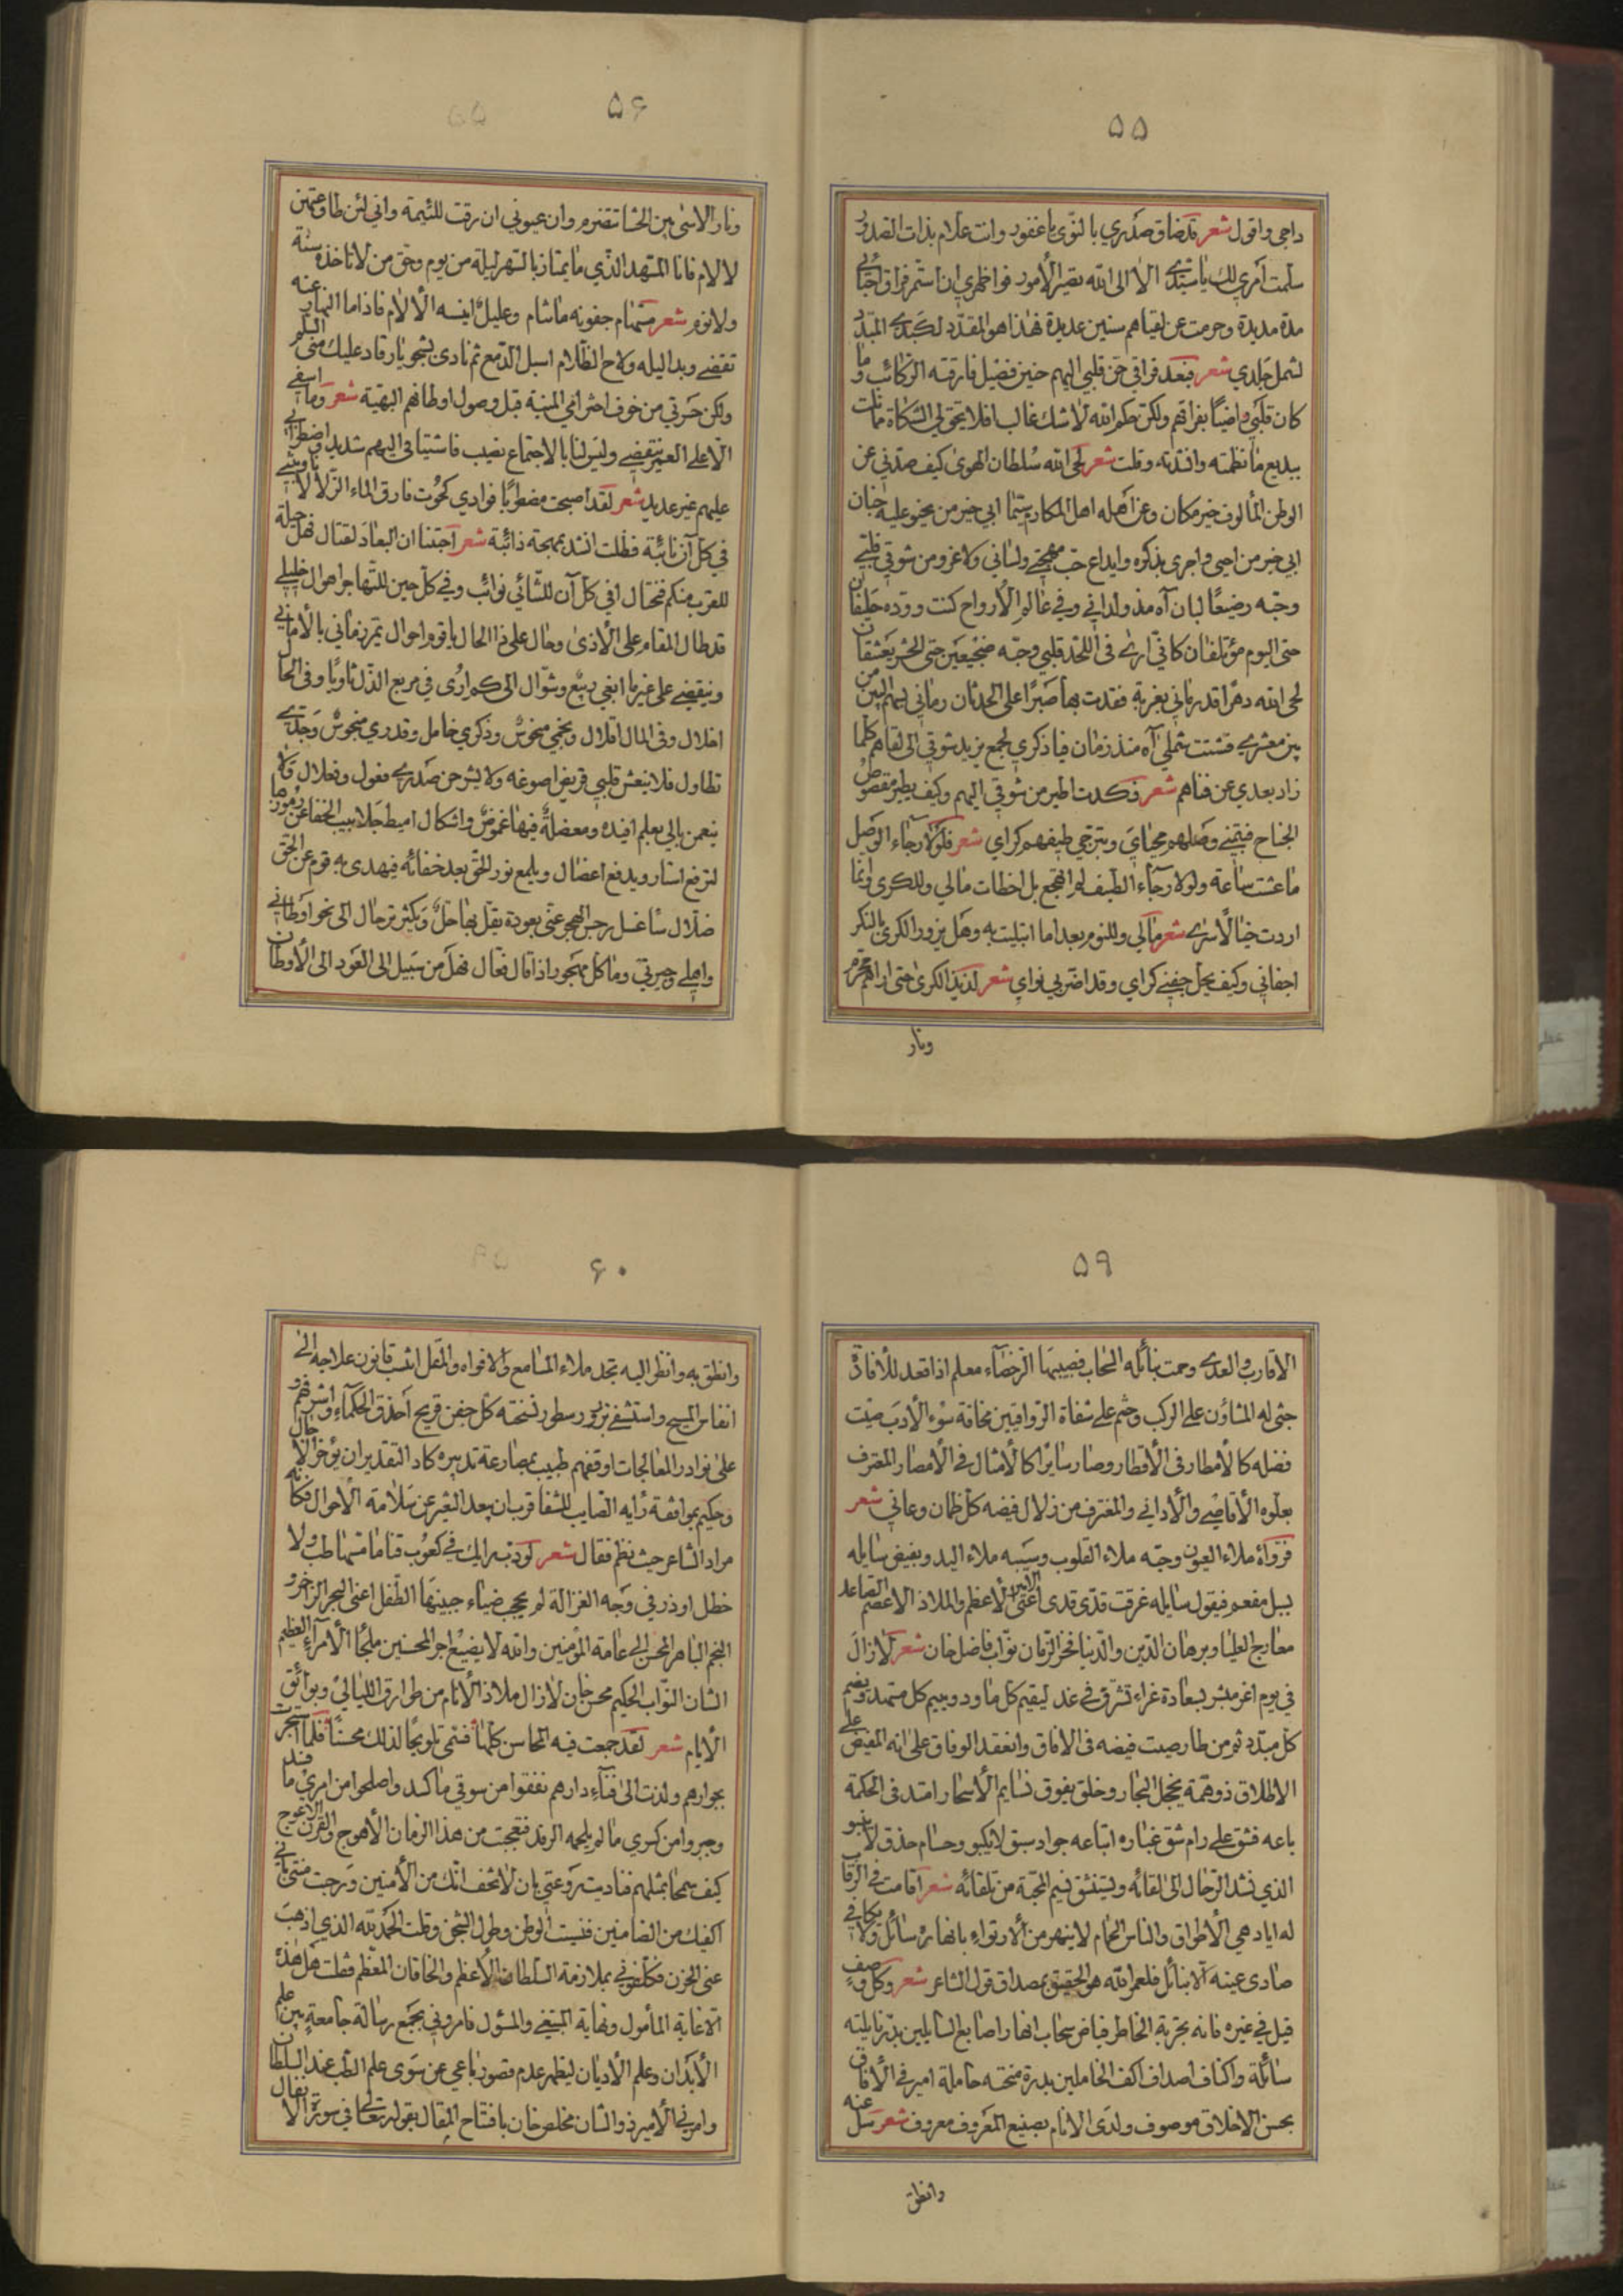 ٥٥
داجي واقول شعر قد ضاق صدري بالنوى يا غفور وانت علام بذات الصدور
سلمت امري لك يا سيدي الا الى الله تصير الامور فواظهري ان استمر فراق احبابي
مدة مديدة وحرمت عن لقياهم سنين عديدة فهذا هو المقدد لكبدي المبدد
لشمل جلدي شعر فبعد فراقي حن قلبي اليهم حنين فضيل فارقته الركائب وما
كان قلبي راضيا بفراقهم ولكن حكم الله لا شك غالب افلا يحق لي الشكاة مما نلت
ببديع ما نظمته وافدته وقلت شعر لحى الله سلطان الهوى كيف صدني عن
الوطن المألوف خير مكان وعن اهله اهل المكارم سيما ابي خير من يحنو عليه جنان
ابي خير من احيى واجرى بذكره وايداع حب مهجتي ولساني ولا غرو من شوقي قلبي
وحبه رضيعا لبان آه مذ ولداني وفي عالم الارواح كنت ووده حليفان
حتى اليوم مؤتلفان كاني ارى في اللحد قلبي وحبه ضجيعين حتى الحشر يعتنقان
لحى الله دهرا قد رماني بغربة فقدت بها صبرا على الحدثان رماني بسهم البين من
بين معشري فتشتت شملي آه منذ زمان فيا ذكري لجمع يزيد شوقي الى لقاهم كلما
زاد بعدي عن فناهم شعر فكدت اطير من شوقي اليهم وكيف يطير مقصوص
الجناح فبتمني وصلهم محياي وبترجي طيفهم كراي شعر فلولا رجاء الوصل
ما عشت ساعة ولولا رجاء الطيف لم اهجع بل اخطات مالي وللكرى وانما
اردت خيالا سرى شعر مالي وللنوم بعد اما ابتليت به وهل يزور الكرى بالنكر
اجفاني وكيف يحل جفني كراي وقد اضر بي نواي شعر لذيذ الكرى حتى اراهم محرم
ونار
٥٦
ونار الاسى بين الحشا تتضرم وان عيوني ان رقت للئيمة واني لئن طاوعتهن
لالام فانا المسهد الذي ما يمتاز بالسهر ليله من يوم وحق من لا تاخذه سنة
ولا نوم شعر مستهام جفونه ما تنام وعليل انيسه الالام فاذا ما النهار عنه
تقضى وبدا ليله ولاح الظلام اسبل الدمع ثم نادى بشجو يا رقاد عليك مني السلم
ولكن حسرتي من خوف اخترامي المنية قبل وصول اوطانهم البهية شعر وما اسفي
الا على العمر ينقضي وليس لنا بالاجتماع نصيب فاشتياقي اليهم شديد واضطرابي
عليهم غير عديد شعر لقد اصبحت مضطربا فوادي كحوت فارق الماء الزلالا
في كل آن نائبة فظلت انشد بمهجة ذائبة شعر احبتنا ان البعاد لقتال فهل حيلة
للقرب منكم فنحتال افي كل آن للتنائي نوائب وفي كل حين للتهاجر اهوال خليلي
قد طال المقام على الاذى وحال على ذا الحال يا قوم احوال يمر زماني بالاماني
وينقضي على غير ما ابغي ربيع وشوال الى كم ارى في مربع الذل ثاويا وفي الحال
اخلال وفي المال اقلال ونجمي منحوس وذكري خامل وقدري منجوس وجدي
تطاول فلا ينعش قلبي قريض اصوغه ولا يشرح صدري فعول وفعلال ولا
ينعمن بالي بعلم افيده ومعضلة فيها غموض واشكال اميط جلابيب الخفا عن رموزها
لترفع استار ويدفع اعضال ويلمع نور الحق بعد خفائه فيهدى به قوم عن الحق
ضلال ساغسل رجس الهجر عني بعودة يقل بها حل ويكثر ترحال الى نحو اوطاني
واهلي وجيرتي وما كل مهجور اذا قال فعال فهل من سبيل الى العود الى الاوطان
٥٩
الاقارب والعدى وهمت بنائله السحاب فصيبها الرحضاء معلم اذا قعد للافادة
جثى له المشاؤن على الركب وختم على شفاة الرواقيين مخافة سوء الادب صيت
فضله كالامطار في الاقطار وصار سايرا كالامثال في الامصار المعترف
بعلوه الاقاصي والاداني والمغترف من زلال فيضه كل ظمان وعاني شعر
فرواه ملاء العيون وحبه ملاء القلوب وسيبه ملاء اليد ويفيض سايله
بسيل مفعم فيقول سايله غرقت قدي قدي اعني الامير الاعظم والملاذ الاعصم القاعد
معارج العليا وبرهان الدين والدنيا فخر الزمان نواب فاضل خان شعر لا زال
في يوم اغر مبشر بسعادة غراء تشرق في غد ليقيم كل ماود ويضم
كل مبدد ثم من طار صيت فيضه في الافاق وانعقد الوفاق على انه المفيض على
الاطلاق ذو همة يخجل البحار وخلق يفوق نسايم الاسحار امتد في الحكمة
باعه فشق على رام شق غباره اتباعه جواد سبق لا يكبو وحسام حذق لا ينبو
الذي تشد الرحال الى لقائه ويستنشق نسيم المحبة من تلقائه شعر اقامت في الرقاب
له اياد هي الاطواق والناس الحمام لا ينهر من الارتواء بانهاره سائل ولا
صادي عينه الا بنائل فلعمر الله هو الحقيق بمصداق قول الشاعر شعر وكل وصف
قيل في غيره فانه تجربة الخاطر فياض سحاب انهار اصابع السايلين
سائلة واكناف اصداف اكف الحاملين بدرة منحته حاملة امير في الافاق
بحسن الاخلاق موصوف ولدى الانام بصنيع المعروف معروف شعر سل عنه
وانطق
٦٠
وانطق به وانظر اليه تجد ملاء المسامع والافواه والمقل انتسب قانون علاجه الى
انفاس المسيح واستشفى بزبور سطور نسخته كل جفن قريح احذق الحكماء واشرفهم
على نوادر المعالجات اوقفهم طبيب بمصارعة تدبيره كاد التقدير ان يؤخر الاجال
وحكيم بموافقة رايه الصايب للشفا قرب ان يعد التغير عن سلامة الاحوال فكانه
مراد الشاعر حيث نظم فقال شعر لو دب رايك في كعوب قنا ما مسها طب ولا
خطل او ذر في وجه الغزالة لم يحجب ضياء جبينها الطفل اعني البحر الزاخر و
النجم الباهر المحسن الى عامة المؤمنين والله لا يضيع اجر المحسنين ملجا الامراء العظيم
الشان النواب الحكيم محسن خان لا زال ملاذ الانام من طوارق الليالي وبوائق
الايام شعر لقد جمعت فيه المحاسن كلها فسمي تلويحا لذلك محسنا فلما استجرت
بجوارهم ولذت الى فناء دارهم نفقوا من سوقي ما كسد واصلحوا من امري ما فسد
وجبروا من كسري ما لم يلحمه الرفد فتعجبت من هذا الزمان الاهوج والقرن الاعوج
كيف سمحا بمثلهم فنادت روعتي بان لا تخف انك من الامنين ورجت منيتي باني
اكفيك من الضامنين فنسيت الوطن وطول الشجن وقلت الحمد لله الذي اذهب
عني الحزن فكلفوني بملازمة السلطان الاعظم والخاقان المعظم فقلت هل هذه
الا غاية المأمول ونهاية المبتغى والمسؤول فامروني بجمع رسالة جامعة بين علم
الابدان وعلم الاديان ليظهر عدم قصور باعي عن سوى علم الطب عند السلطان
وامرني الامير ذو الشان مخلص خان بافتتاح المقال بقوله تعالى في سورة الانفال